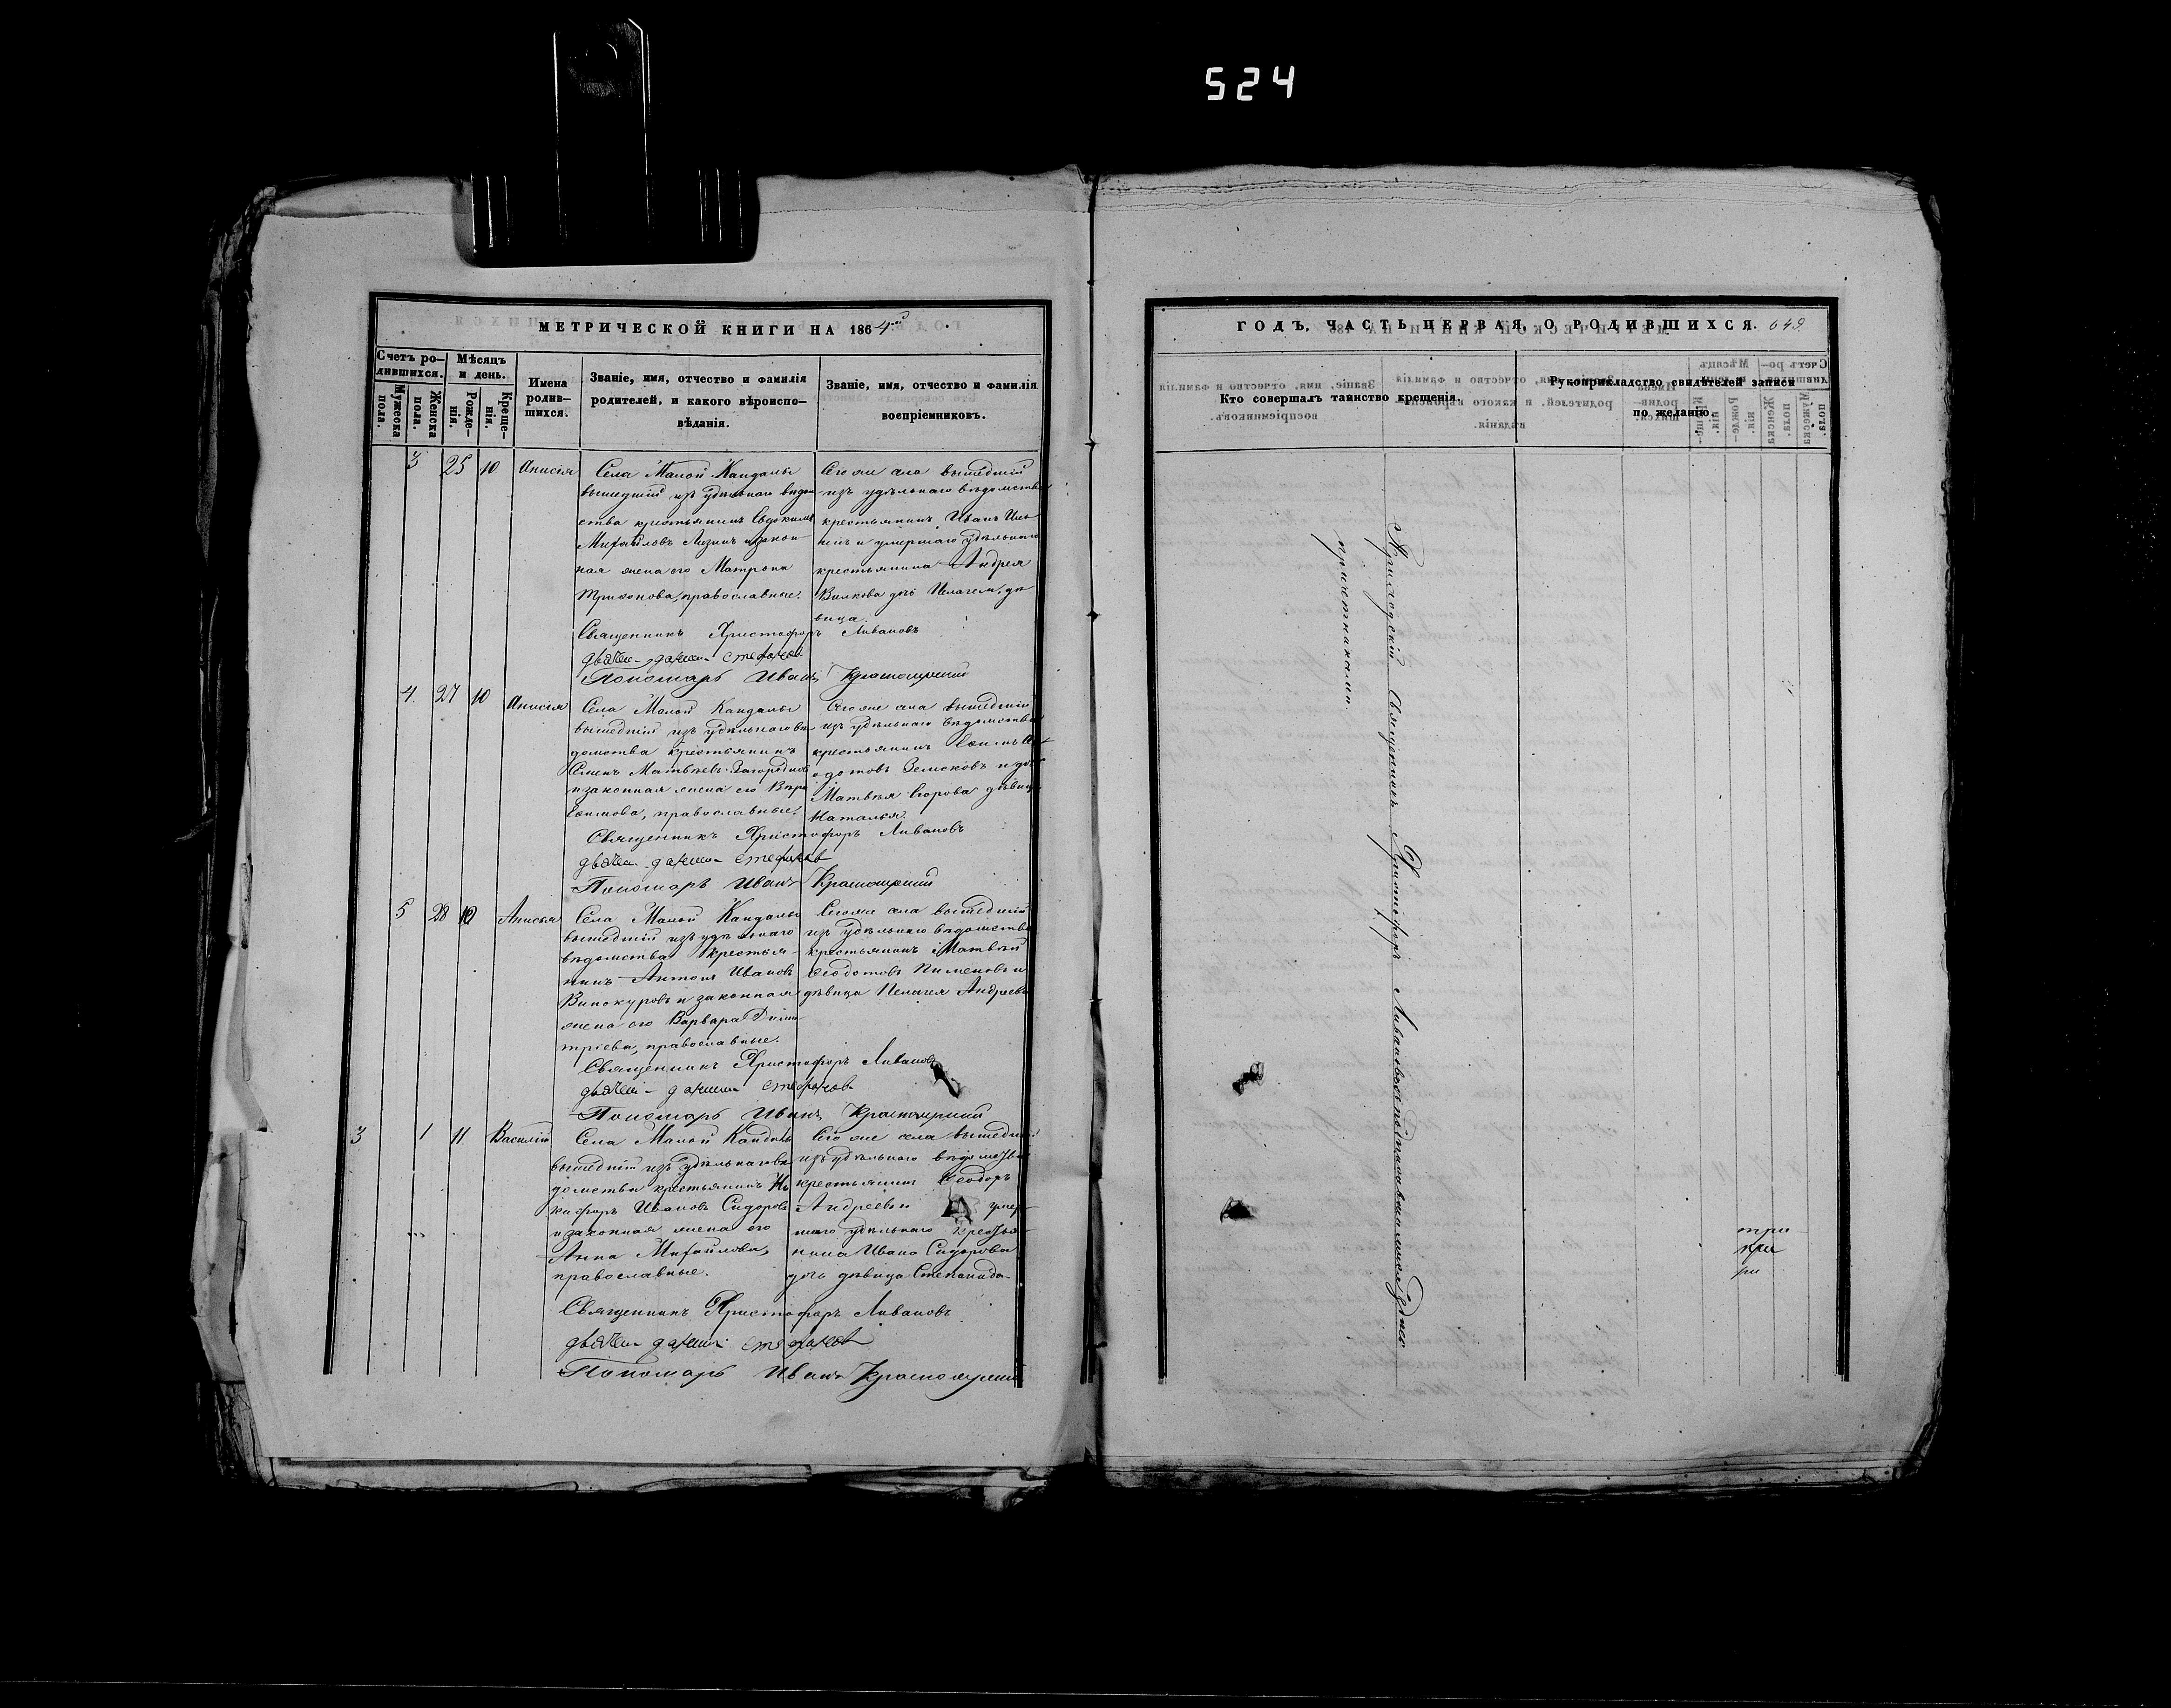 524
МЕТРИЧЕСКОЙ КНИГИ НА 1864й
Счетъ ро-
дившихся.
Мужеска пола.
Женска пола.
Мѣсяцъ
и день.
Рожде-
нія.
Креще-
нія.
Имена
родив-
шихся.
Званіе, имя, отчество и фамилія
родителей, и какого вѣроиспо-
вѣданія.
Званіе, имя, отчество и фамилія
воспріемниковъ.
3 25 10 Анисія
Села Малой Кандалы
вышедшій изъ удѣльнаго вѣдом
ства крестьянинъ Евдокимъ
Михайловъ и закон
ная жена его Матрона
православные.
Сегоже села вышедшій
изъ удѣльнаго вѣдомства
крестьянинъ Иванъ
и умершаго удѣльнаго
крестьянина Андрея
дочь Пелагея, дѣ
вица.
Священникъ Христофоръ Ливановъ
дьячекъ Стефановъ
Пономарь Иванъ
4 27 10 Анисія
Села Малой Кандалы
вышедшій изъ удѣльнаго вѣ
домства крестьянинъ
Семенъ Матвѣевъ Загородновъ
и законная жена его Вѣра
Ефимова, православные.
Сегоже села вышедшій
изъ удѣльнаго вѣдомства
крестьянинъ
Матвѣя Егорова дѣвица
Наталья.
Священникъ Христофоръ Ливановъ
дьячекъ Стефановъ
Пономарь Иванъ
5 28 10 Анисья
Села Малой Кандалы
вышедшій изъ удѣльнаго
вѣдомства крестья-
нинъ Антонъ Ивановъ
Винокуровъ и законная
жена его Варвара Дими
тріева, православные.
Сегоже села вышедшій
изъ удѣльнаго вѣдомства
крестьянинъ Матвѣй
Ѳеодотовъ Пименовъ и
дѣвица Пелагея Андреева
Священникъ Христофоръ Ливановъ
дьячекъ Стефановъ
Пономарь Иванъ
3 1 11 Василій
Села Малой Кандалы
вышедшій изъ удѣльнаго вѣ
домства крестьянинъ Ни
кифоръ Ивановъ Сидоровъ
и законная жена его
Анна Михайлова,
православные.
Сегоже села вышедшій
изъ удѣльнаго вѣдомства
крестьянинъ Ѳеодоръ
Андреевъ и умер
шаго удѣльнаго крестья
нина Ивана Сидорова
дочь дѣвица Степанида
Священникъ Христофоръ Ливановъ
дьячекъ Стефановъ
Пономарь Иванъ
ГОДЪ, ЧАСТЬ ПЕРВАЯ, О РОДИВШИХСЯ. 649
Кто совершалъ таинство крещенія.
Рукоприкладство свидѣтелей записи
по желанію.
Приходскій Священникъ Христофоръ Ливановъ съ подписавшимися здѣсь
причетниками.
при
при
ри